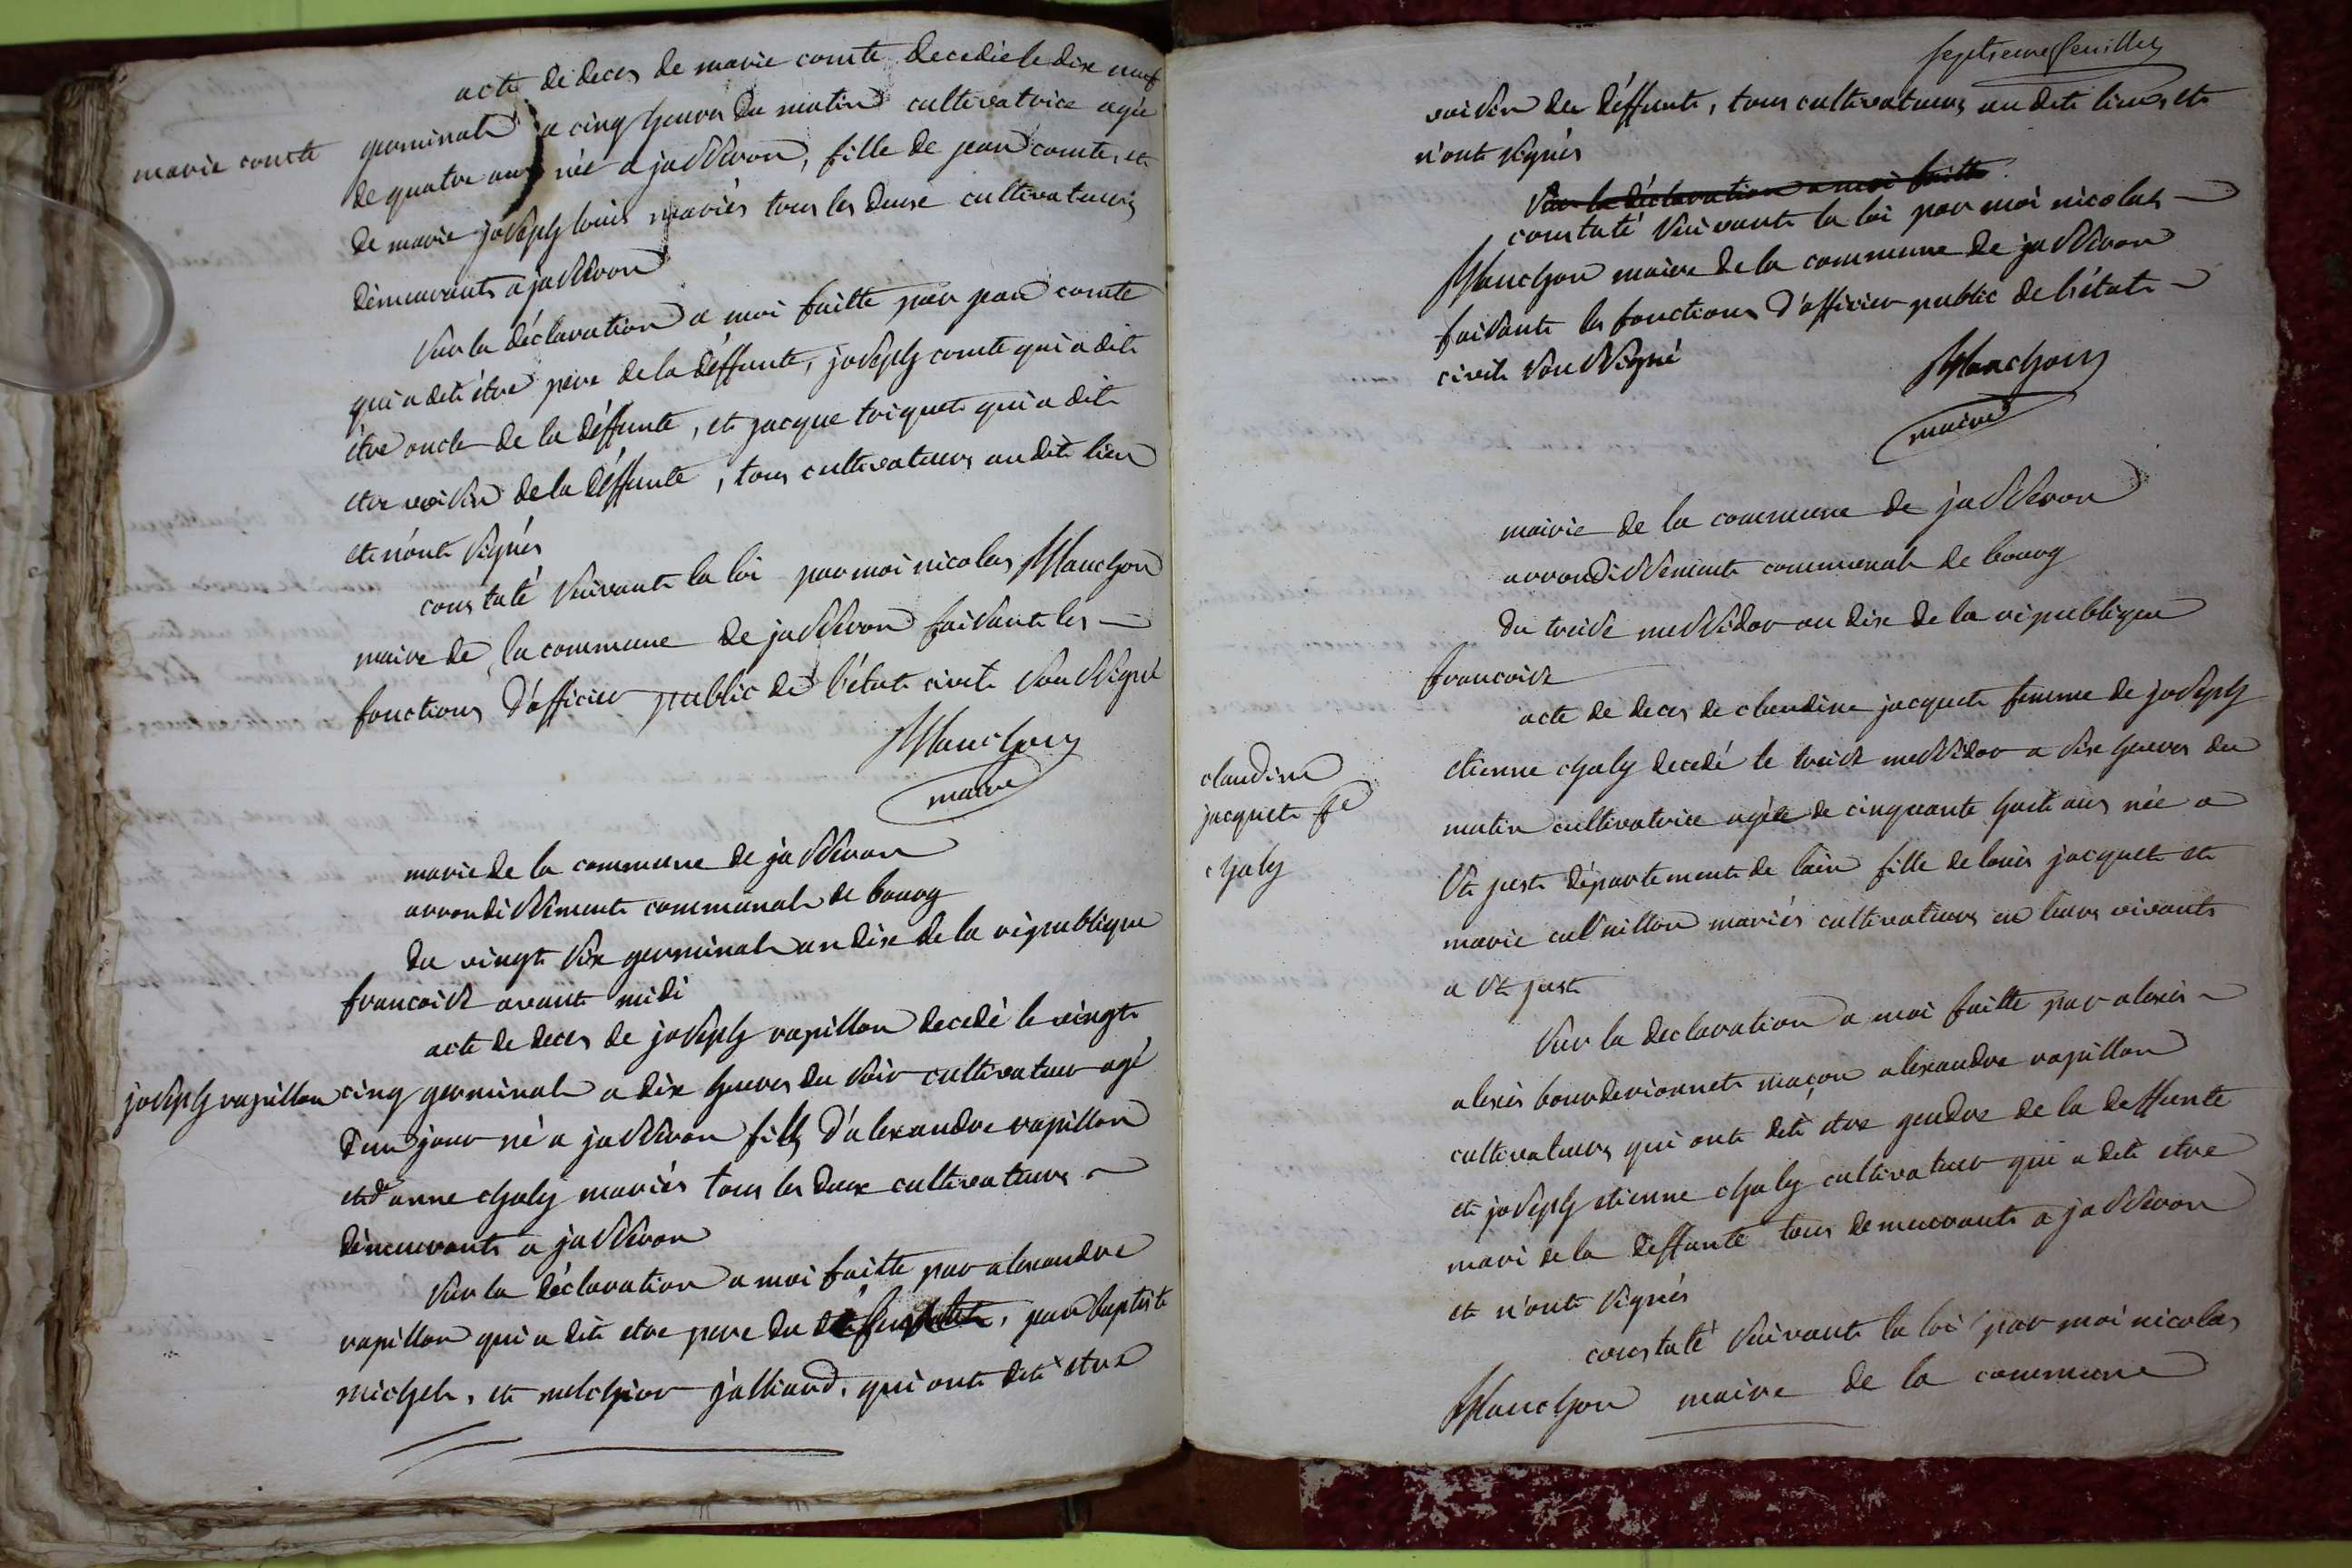 acte de deces de marie comte decedée le dix neuf
marie comte
germinal a cinq heures du matin cultivatrice agée
de quatre ans née a jasseron, fille de jean comte, et
de marie joseph louis mariés tous les deux cultivateurs
démeurants a jasseron
Sur la déclaration a moi faitte par jean comte
qui a dit être pere de la déffunte, joseph comte qui a dit
être oncle de la déffunte, et jacque triquet qui a dit
etre voisin de la déffunte, tous cultivateurs au dit lieu
et n'ont signés
constaté suivant la loi par moi nicolas Manchon
maire de la commune de jasseron faisant les
fonctions d'officier public de l'état civil soussigné
Manchon
maire
marie de la commune de jasseron
arrondissement communal de bourg
du vingt six germinal an dix de la république
francoise avant midi
acte de deces de joseph rapillon decedé le vingt
joseph rapillon
cinq germinal a dix heures du soir cultivateur agé
d'un jour né a jasseron fils d'alexandre rapillon
et d'anne chaly mariés tous les deux cultivateurs
démeurants a jasseron
Sur la déclaration a moi faitte par alexandre
rapillon qui a dit etre pere du, jean baptiste
michel, et melchior jalliard, qui ont dit etre
septieme feuillet
voisin du déffunt, tous cultivateurs au dit lieu, et
n'ont signés
Sur la déclaration a moi faitte
constaté suivant la loi par moi nicolas
Manchon maire de la commune de jasseron
faisant les fonctions d'officier public de l'état
civil soussigné
Manchon
maire
mairie de la commune de jasseron
arrondissement communal de bourg
du treise messidor an dix de la république
francoise
acte de deces de claudine jacquet femme de joseph
claudine
jacquet fe
chaly
etienne chaly decedé le treise messidor a six heures du
matin cultivatrice agée de cinquante huit ans née a
St just département de l'ain fille de louis jacquet et
marie mariés cultivateurs en leurs vivants
a St just
Sur la declaration a moi faitte par alexis
alexis bourderionnet maçon alexandre rapillon
cultivateurs qui ont dit etre gendre de la deffunte
et joseph etienne chaly cultivateur qui a dit etre
mari de la deffunte tous demeurants a jasseron
et n'ont signés
constaté suivant la loi par moi nicolas
Manchon maire de la commune